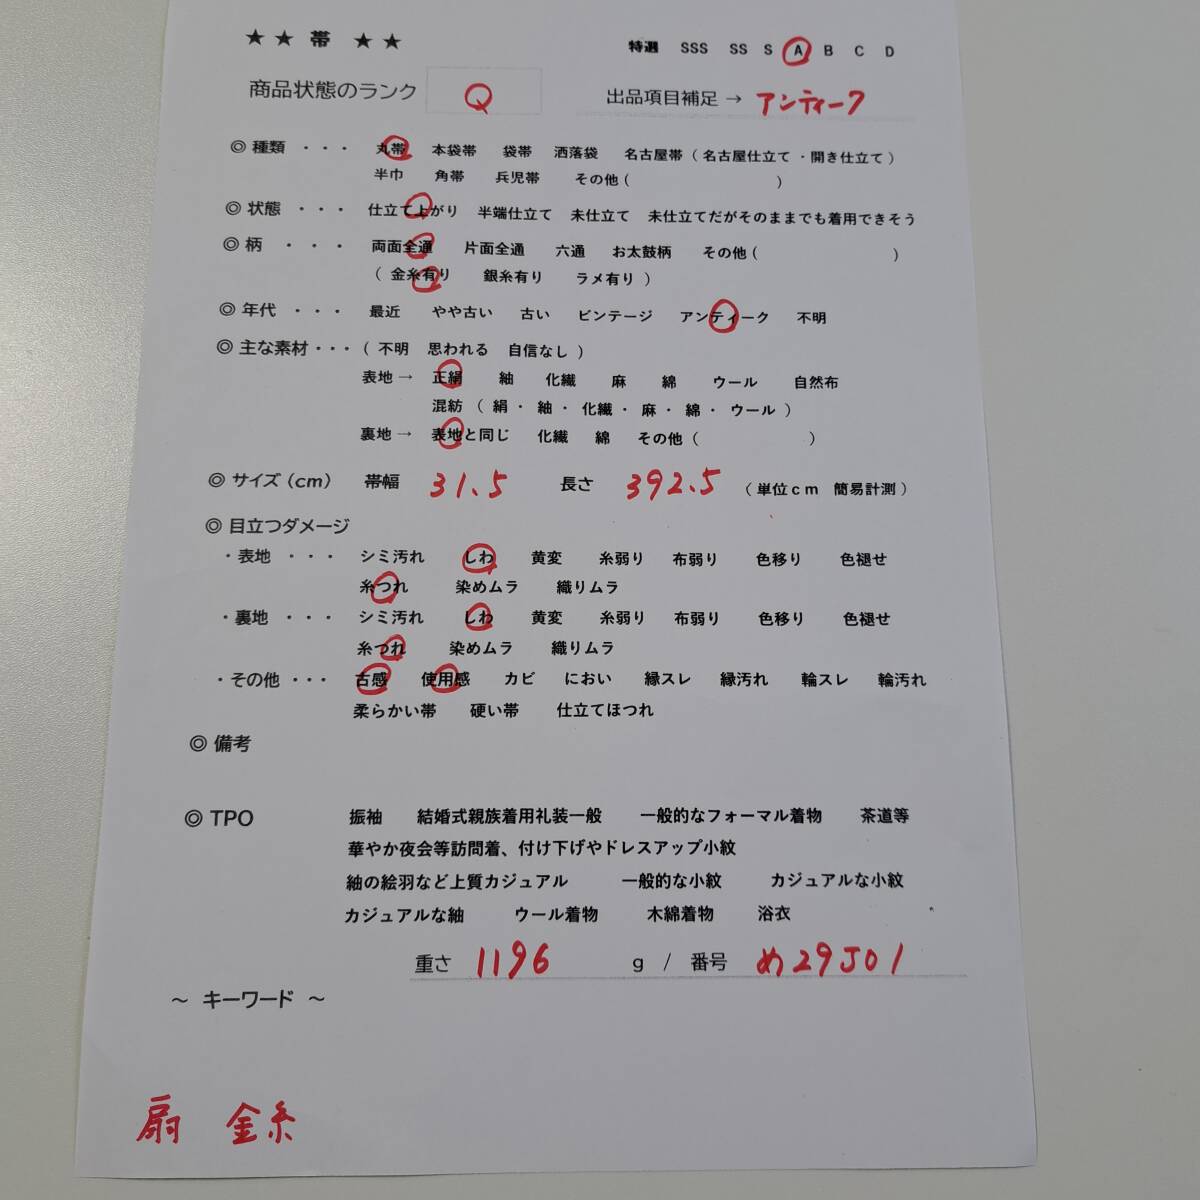 ★ ★ 帯 ★ ★ 特選 SSS SS S A B C D
商品状態のランク Q 出品項目補足 → アンティーク
◎ 種類 ・・・ 丸帯 本袋帯 袋帯 洒落袋 名古屋帯 ( 名古屋仕立て ・開き仕立て )
半巾 角帯 兵児帯 その他 ( )
◎ 状態 ・・・ 仕立て上がり 半端仕立て 未仕立て 未仕立てだがそのままでも着用できそう
◎ 柄 ・・・ 両面全通 片面全通 六通 お太鼓柄 その他 ( )
( 金糸有り 銀糸有り ラメ有り )
◎ 年代 ・・・ 最近 やや古い 古い ビンテージ アンティーク 不明
◎ 主な素材・・・ ( 不明 思われる 自信なし )
表地 → 正絹 紬 化繊 麻 綿 ウール 自然布
混紡 ( 絹・ 紬・ 化繊・ 麻・ 綿・ ウール )
裏地 → 表地と同じ 化繊 綿 その他 ( )
◎ サイズ (cm) 帯幅 31.5 長さ 392.5 ( 単位cm 簡易計測 )
◎ 目立つダメージ
・表地 ・・・ シミ汚れ しわ 黄変 糸弱り 布弱り 色移り 色褪せ
糸つれ 染めムラ 織りムラ
・裏地 ・・・ シミ汚れ しわ 黄変 糸弱り 布弱り 色移り 色褪せ
糸つれ 染めムラ 織りムラ
・その他 ・・・ 古感 使用感 カビ におい 縁スレ 縁汚れ 輪スレ 輪汚れ
柔らかい帯 硬い帯 仕立てほつれ
◎ 備考
◎ TPO 振袖 結婚式親族着用礼装一般 一般的なフォーマル着物 茶道等
華やか夜会等訪問着、付け下げやドレスアップ小紋
紬の絵羽など上質カジュアル 一般的な小紋 カジュアルな小紋
カジュアルな紬 ウール着物 木綿着物 浴衣
重さ 1196 g / 番号 め29J01
～ キーワード ～
扇 金糸